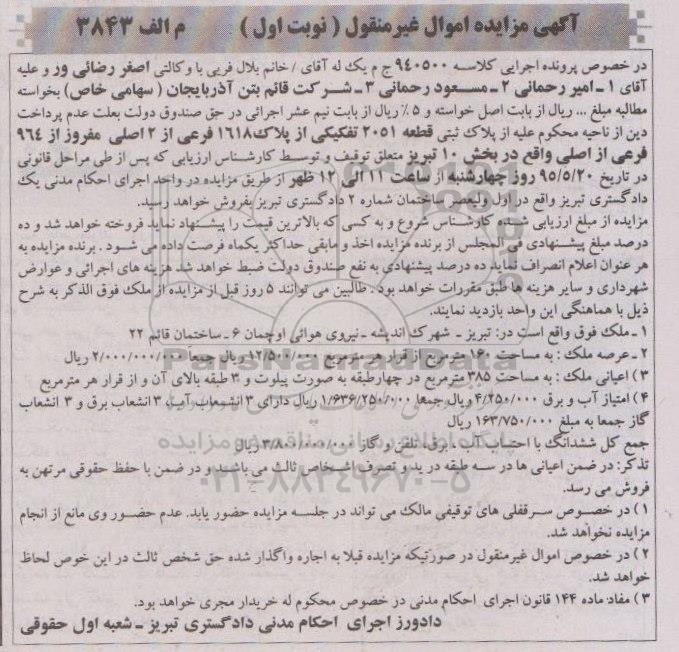 آگهی مزایده اموال غیرمنقول ( نوبت اول ) م الف ۳۸۴۳
در خصوص پرونده اجرایی کلاسه ۹۴۰۵۰۰ ج م یک له آقای / خانم بلال فریی با وکالتی اصغر رضائی ور و علیه
آقای ۱ - امیر رحمانی ۲ - مسعود رحمانی ۳ - شرکت قائم بتن آذربایجان ( سهامی خاص) بخواسته
مطالبه مبلغ ... ریال از بابت اصل خواسته و ۵٪ ریال از بابت نیم عشر اجرائی در حق صندوق دولت بعلت عدم پرداخت
دین از ناحیه محکوم علیه از پلاک ثبتی قطعه ۲۰۵۱ تفکیکی از پلاک ۱۶۱۸ فرعی از ۲ اصلی مفروز از ۹۶۴
فرعی از اصلی واقع در بخش ۱۰ تبریز متعلق توقیف و توسط کارشناس ارزیابی که پس از طی مراحل قانونی
در تاریخ ۹۵/۵/۲۰ روز چهارشنبه از ساعت ۱۱ الی ۱۲ ظهر از طریق مزایده در واحد اجرای احکام مدنی یک
دادگستری تبریز واقع در اول ولیعصر ساختمان شماره ۲ دادگستری تبریز بفروش خواهد رسید.
مزایده از مبلغ ارزیابی شده کارشناس شروع و به کسی که بالاترین قیمت را پیشنهاد نماید فروخته خواهد شد و ده
درصد مبلغ پیشنهادی فی المجلس از برنده مزایده اخذ و مابقی حداکثر یکماه فرصت داده می شود . برنده مزایده به
هر عنوان اعلام انصراف نماید ده درصد پیشنهادی به نفع صندوق دولت ضبط خواهد شد هزینه های اجرائی و عوارض
شهرداری و سایر هزینه ها طبق مقررات خواهد بود . طالبین می توانند ۵ روز قبل از مزایده از ملک فوق الذکر به شرح
ذیل با هماهنگی این واحد بازدید نمایند.
۱ - ملک فوق واقع است در: تبریز - شهرک اندیشه - نیروی هوائی اوچمان ۶ - ساختمان قائم ۲۲
۲ - عرصه ملک : به مساحت ۱۶۰ مترمربع از قرار هر مترمربع ۱۲/۵۰۰/۰۰۰ ریال جمعا ۲/۰۰۰/۰۰۰/۰۰۰ ریال
۳) اعیانی ملک : به مساحت ۳۸۵ مترمربع در چهارطبقه به صورت پیلوت و ۳ طبقه بالای آن و از قرار هر مترمربع
۴) امتیاز آب و برق ۴/۲۵۰/۰۰۰ ریال جمعا ۱/۶۳۶/۲۵۰/۰۰۰ ریال دارای ۳ انشعاب آب، ۳ انشعاب برق و ۳ انشعاب
گاز جمعا به مبلغ ۱۶۳/۷۵۰/۰۰۰ ریال
جمع کل ششدانگ با احتساب آب ، برق، تلفن و گاز ۳/۸۰۰/۰۰۰/۰۰۰ ریال
تذکر: در ضمن اعیانی ها در سه طبقه در ید و تصرف اشخاص ثالث می باشند و در ضمن با حفظ حقوقی مرتهن به
فروش می رسد.
۱) در خصوص سرقفلی های توقیفی مالک می تواند در جلسه مزایده حضور یابد. عدم حضور وی مانع از انجام
مزایده نخواهد شد.
۲) در خصوص اموال غیرمنقول در صورتیکه مزایده قبلا به اجاره واگذار شده حق شخص ثالث در این خوص لحاظ
خواهد شد.
۳) مفاد ماده ۱۴۴ قانون اجرای احکام مدنی در خصوص محکوم له خریدار مجری خواهد بود.
دادورز اجرای احکام مدنی دادگستری تبریز - شعبه اول حقوقی
ParsNamadData
پایگاه اطلاع رسانی مناقصه و مزایده
۰۲۱-۸۸۳۴۹۶۷۰-۵